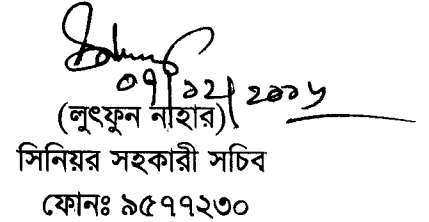 ০৭/১২/২০১৬
(লুৎফুন নাহার)
সিনিয়র সহকারী সচিব
ফোনঃ ৯৫৭৭২৩০